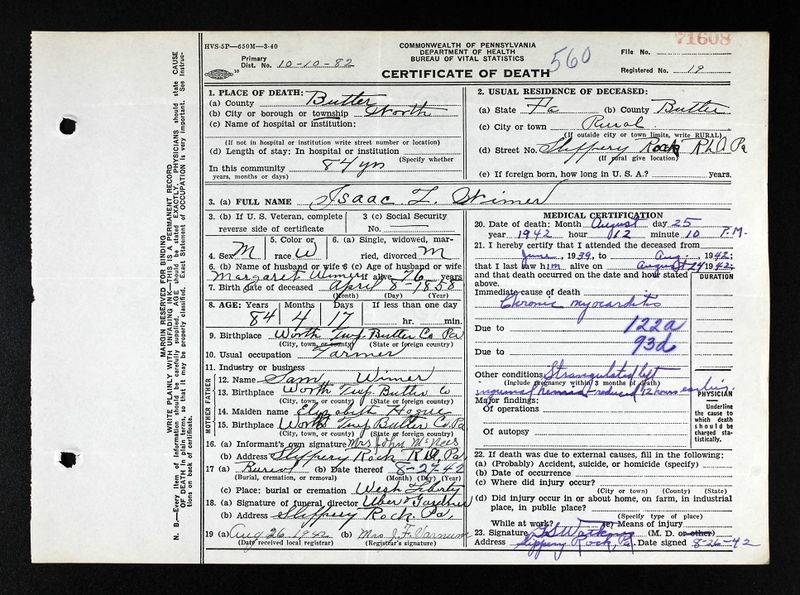 HVS-5P—650M—3-40
COMMONWEALTH OF PENNSYLVANIA
DEPARTMENT OF HEALTH
BUREAU OF VITAL STATISTICS
560
71608
File No.
Primary
Dist. No. 10-10-82
CERTIFICATE OF DEATH
Registered No. 19
MARGIN RESERVED FOR BINDING
WRITE PLAINLY WITH UNFADING INK—THIS IS A PERMANENT RECORD
N. B.—Every item of information should be carefully supplied. AGE should be stated EXACTLY. PHYSICIANS should state CAUSE
OF DEATH in plain terms, so that it may be properly classified. Exact Statement of OCCUPATION is very important. See instruc-
tions on back of certificate.
1. PLACE OF DEATH:
(a) County Butler
(b) City or borough or township Worth
(c) Name of hospital or institution:
(If not in hospital or institution write street number or location)
(d) Length of stay: In hospital or institution
(Specify whether
In this community 84 yrs
years, months or days)
2. USUAL RESIDENCE OF DECEASED:
(a) State Pa (b) County Butler
(c) City or town Rural
(If outside city or town limits, write RURAL)
(d) Street No. Slippery Rock R.D. Pa
(If rural give location)
(e) If foreign born, how long in U. S. A.? years.
3. (a) FULL NAME Isaac L. Wimer
3. (b) If U. S. Veteran, complete
reverse side of certificate
3 (c) Social Security
No.
4. Sex M
5. Color or
race W
6. (a) Single, widowed, mar-
ried, divorced M
6. (b) Name of husband or wife 6 (c) Age of husband or wife
Margaret Wimer alive 76 years
7. Birth date of deceased April 8-1858
(Month) (Day) (Year)
8. AGE: Years Months Days If less than one day
84 4 17 hr. min.
9. Birthplace Worth Twp. Butler Co Pa
(City, town, or county) (State or foreign country)
10. Usual occupation Farmer
11. Industry or business
MOTHER FATHER
12. Name Sam Wimer
13. Birthplace Worth Twp. Butler Co
(City, town, or county) (State or foreign country)
14. Maiden name Elizabeth Hogue
15. Birthplace Worth Twp Butler Co. Pa
(City, town, or county) (State or foreign country)
16. (a) Informant's own signature Mrs John McNees
(b) Address Slippery Rock R.D. Pa.
17 (a) Burial (b) Date thereof 8-27-42
(Burial, cremation, or removal) (Month) (Day) (Year)
(c) Place: burial or cremation West Liberty
18. (a) Signature of funeral director Uber &
(b) Address Slippery Rock Pa.
19 (a) Aug 26 1942 (b) Mrs J. F. Varnum
(Date received local registrar) (Registrar's signature)
MEDICAL CERTIFICATION
20. Date of death: Month August day 25
year 1942 hour 12 minute 10 P.M.
21. I hereby certify that I attended the deceased from
June, 1939, to Aug., 1942;
that I last saw him alive on August 24 1942;
and that death occurred on the date and hour stated
above. DURATION
Immediate cause of death
Chronic myocarditis
Due to 122a
Due to 93d
Other conditions Strangulated left
(Include pregnancy within 3 months of death)
inguinal hernia reduced 12 hours earlier.
PHYSICIAN
Major findings:
Of operations
Of autopsy
Underline
the cause to
which death
should be
charged sta-
tistically.
22. If death was due to external causes, fill in the following:
(a) (Probably) Accident, suicide, or homicide (specify)
(b) Date of occurrence
(c) Where did injury occur?
(City or town) (County) (State)
(d) Did injury occur in or about home, on farm, in industrial
place, in public place?
(Specify type of place)
While at work? (e) Means of injury
23. Signature (M. D. or other)
Address Slippery Rock, Pa. Date signed 8-26-42